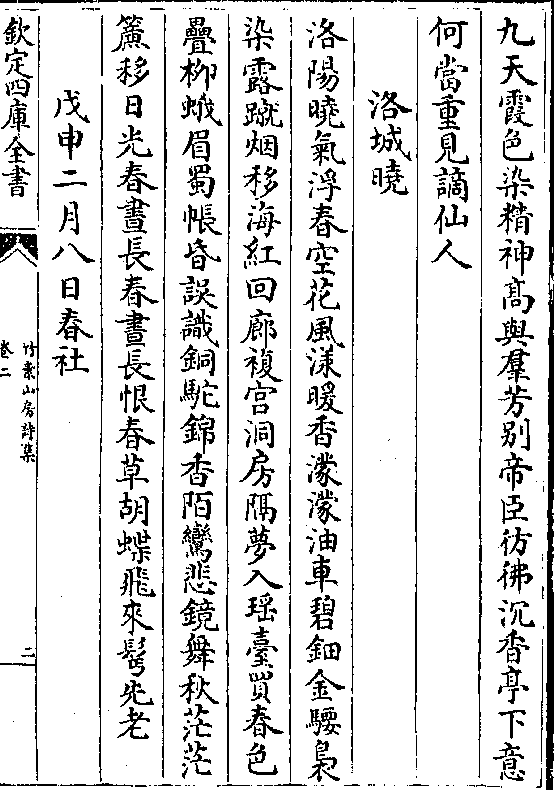 九天霞色染精神髙與羣芳别帝臣彷彿沉香亭下意
何當重見謫仙人
洛城曉
洛陽曉氣浮春空花風漾暖香濛濛油車碧鈿金騕褭
染露蹴烟移海紅回廊複宫洞房隔夢入瑶臺買春色
疊柳蛾眉蜀帳昏誤識銅駝錦香陌鸞悲鏡舞秋茫茫
簾移日光春晝長春晝長恨春草胡蝶飛來髩先老
戊申二月八日春社
欽定四庫全書
竹素山房詩集
卷二
二